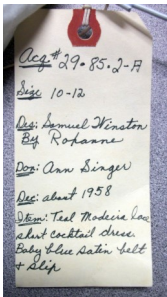 Acq# 29-85.2-A
Size 10-12
Des: Samuel Winston
By Roxanne
Don: Ann Singer
Dec: about 1958
Item: Teal Madeira lace
short cocktail dress.
Baby blue satin belt
& slip